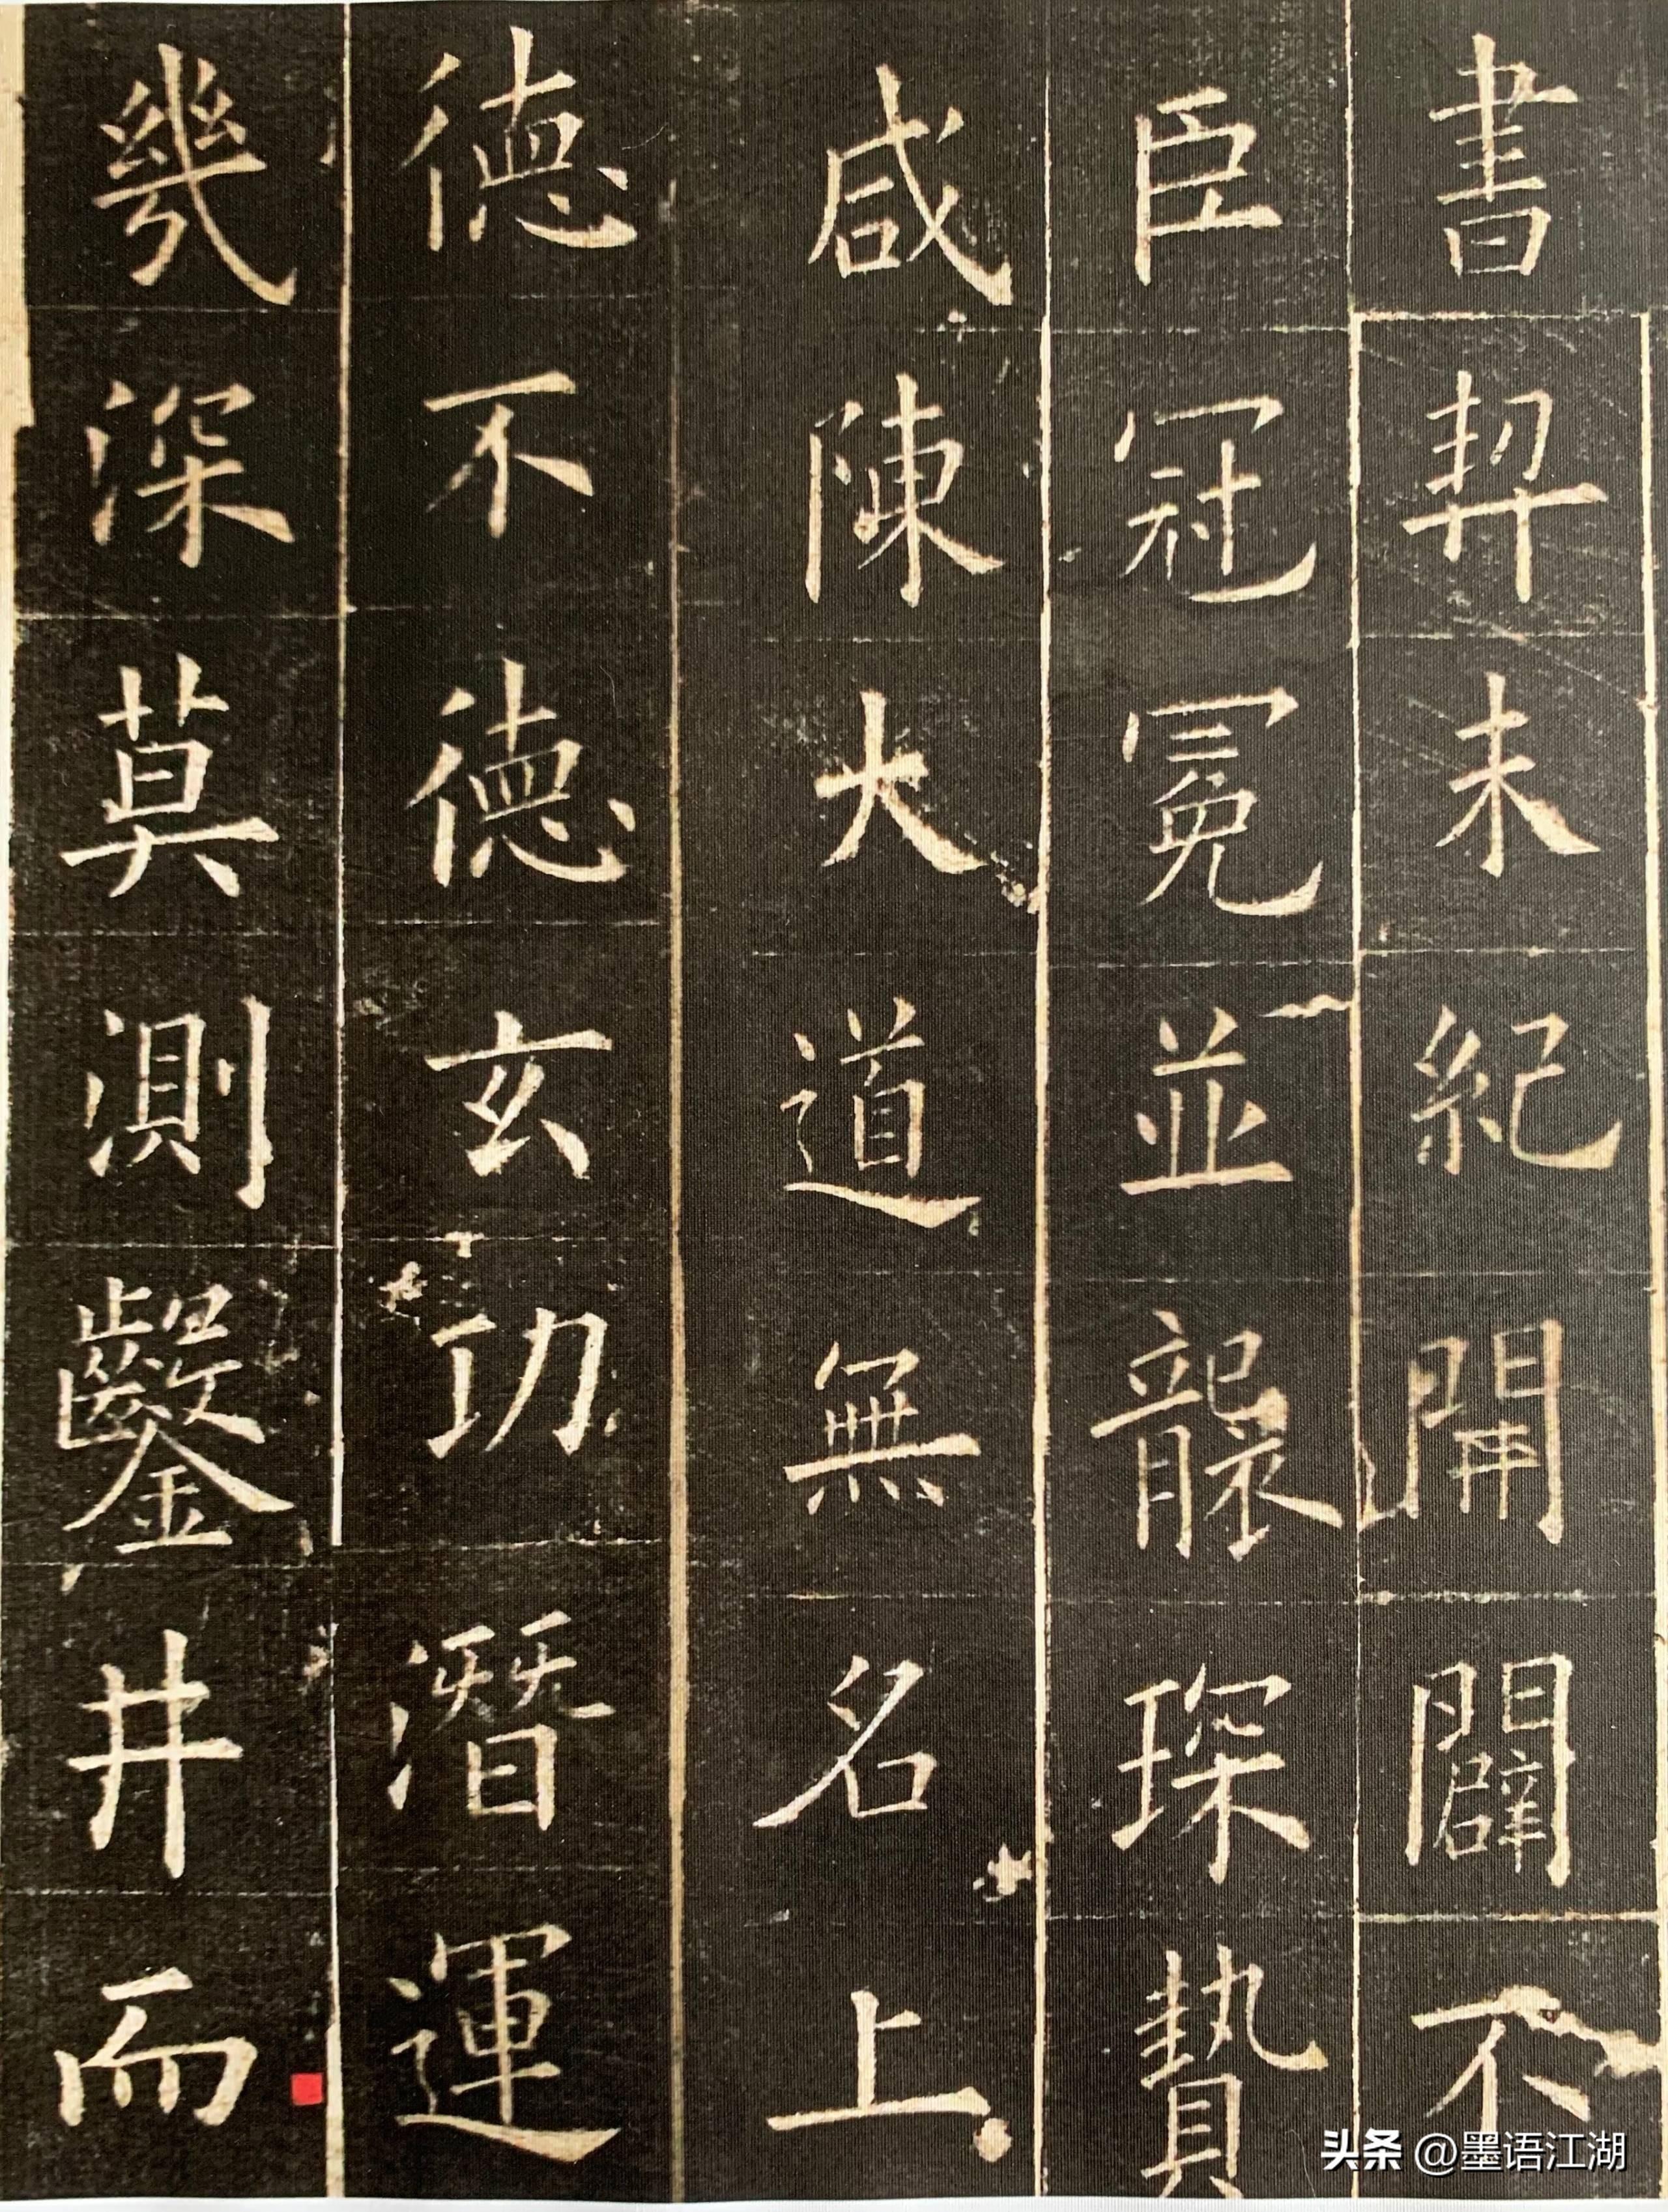 書契未紀開闢不
臣冠冕並襲琛贄
咸陳大道無名上
德不德玄功潛運
幾深莫測鑿井而
头条 @墨语江湖